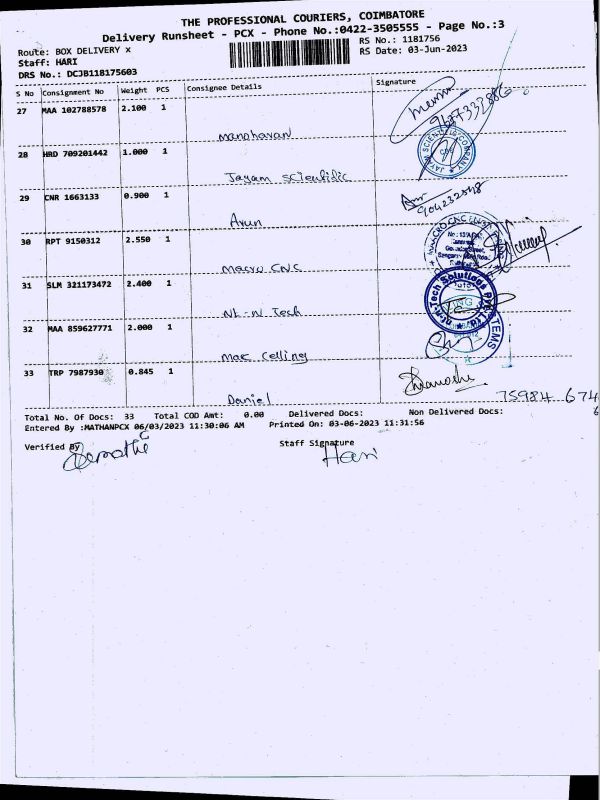 THE PROFESSIONAL COURIERS, COIMBATORE
Delivery Runsheet - PCX - Phone No.:0422-3505555 - Page No.:3
Route: BOX DELIVERY x
RS No.: 1181756
Staff: HARI
RS Date: 03-Jun-2023
DRS No.: DCJB118175603
S No Consignment No Weight PCS Consignee Details Signature
27 MAA 102788578 2.100 1
manoharan
28 HRD 709201442 1.000 1
Jayam Scientific
JAYAM SCIENTIFIC COMPANY
CBE
29 CNR 1663133 0.900 1
Arun
30 RPT 9150312 2.550 1
Macro CNC
31 SLM 321173472 2.400 1
Nt-N Tech
32 MAA 859627771 2.000 1
Mak Celling
33 TRP 7987930 0.845 1
Daniel
75984 674
Total No. Of Docs: 33 Total COD Amt: 0.00 Delivered Docs: Non Delivered Docs:
Entered By :MATHANPCX 06/03/2023 11:30:06 AM Printed On: 03-06-2023 11:31:56
Verified By Staff Signature
Hari